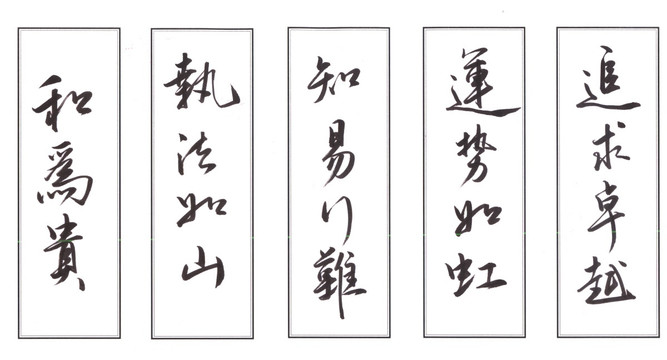 和爲貴
執法如山
知易行難
運势如虹
追求卓越